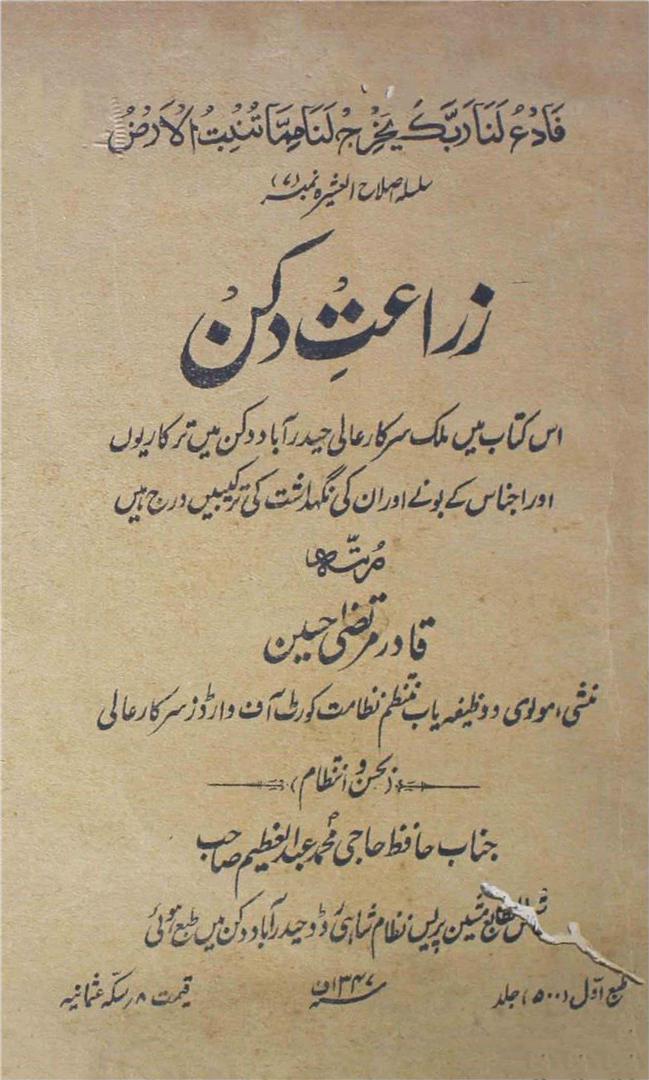 فَادْعُ لَنَا رَبَّكَ يُخْرِجْ لَنَا مِمَّا تُنْبِتُ الْاَرْضُ
سلسلہ اصلاح العشیرہ نمبر (۷)
زراعتِ دکن
اس کتاب میں ملک سرکار عالی حیدرآباد دکن میں ترکاریوں
اور اجناس کے بونے اور ان کی نگہداشت کی ترکیبیں درج ہیں
مُرتبہ
قادر مرتضیٰ حسین
منشی، مولوی و وظیفہ یاب منتظم نظامت کورٹ آف وارڈز سرکار عالی
(بحسن و انتظام)
جناب حافظ حاجی محمد عبد العظیم صاحب
المطابع مشین پریس نظام شاہی روڈ حیدرآباد دکن میں طبع ہوئی
طبع اوّل (۵۰۰) جلد
سنہ ۱۳۴۷ ف
قیمت ۸ر سکّہ عثمانیہ